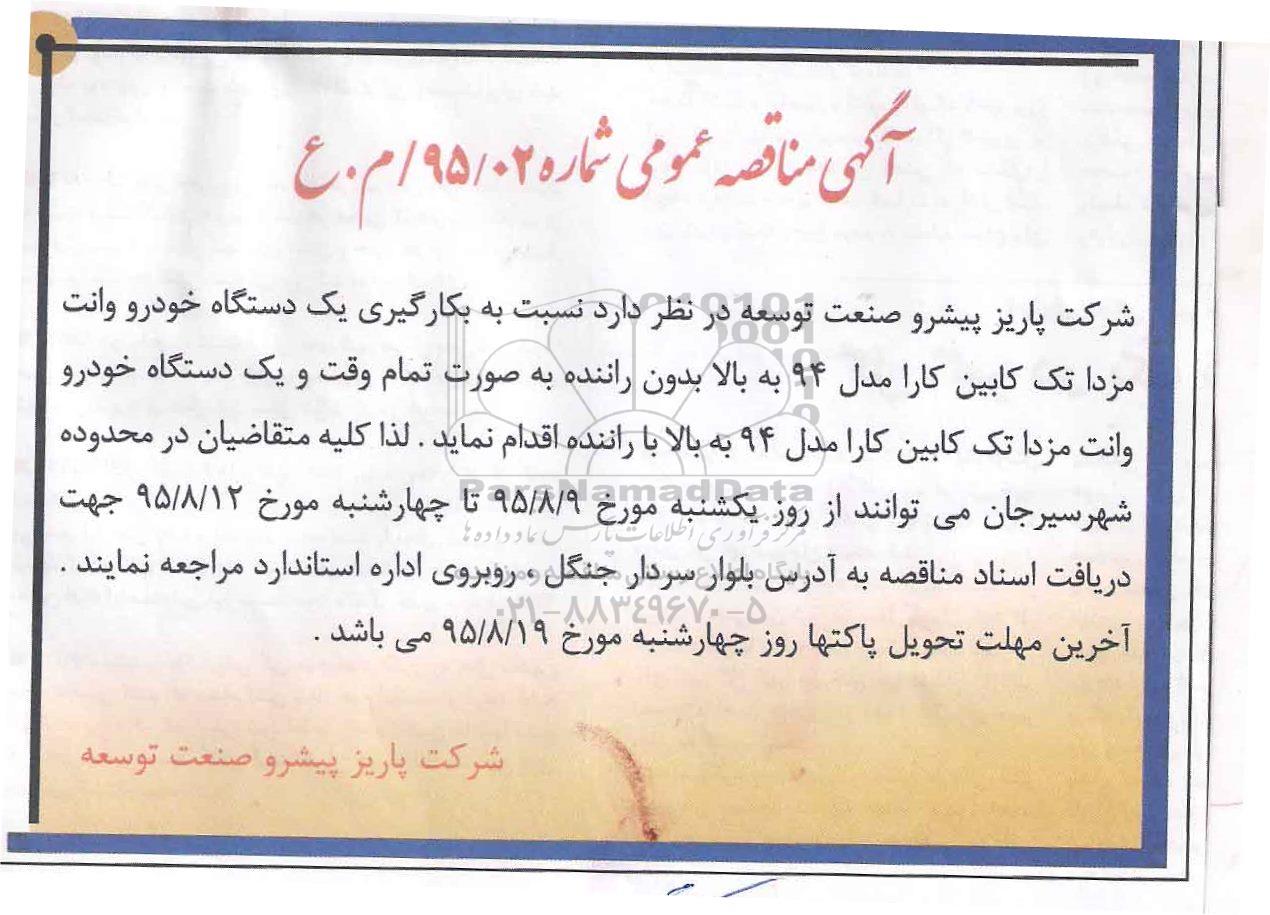 آگهی مناقصه عمومی شماره ۹۵/۰۲/م.ع
شرکت پاریز پیشرو صنعت توسعه در نظر دارد نسبت به بکارگیری یک دستگاه خودرو وانت
مزدا تک کابین کارا مدل ۹۴ به بالا بدون راننده به صورت تمام وقت و یک دستگاه خودرو
وانت مزدا تک کابین کارا مدل ۹۴ به بالا با راننده اقدام نماید . لذا کلیه متقاضیان در محدوده
شهرسیرجان می توانند از روز یکشنبه مورخ ۹۵/۸/۹ تا چهارشنبه مورخ ۹۵/۸/۱۲ جهت
دریافت اسناد مناقصه به آدرس بلوار سردار جنگل ، روبروی اداره استاندارد مراجعه نمایند .
آخرین مهلت تحویل پاکتها روز چهارشنبه مورخ ۹۵/۸/۱۹ می باشد .
شرکت پاریز پیشرو صنعت توسعه
ParsNamadData
مرکز فرآوری اطلاعات پارس نماد داده ها
۰۲۱-۸۸۳۴۹۶۷۰-۵